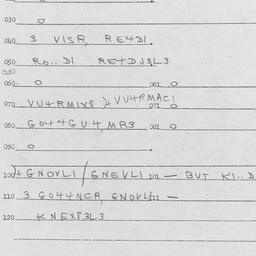 030 O
040 3 VISR, RE4DI.
050 RO..DI RE4DJ3L3
051
060 O 061 O
070 VU4RMIX8 }+ VU4RMACI
072 O
080 GO44GU4,MR3 081 O
090 O
100 + GNOVLI / GNEVLI 101 — BUT KI..D
110 3 GO44NCR, GNOVL 111 —
120 KNEXP3L3